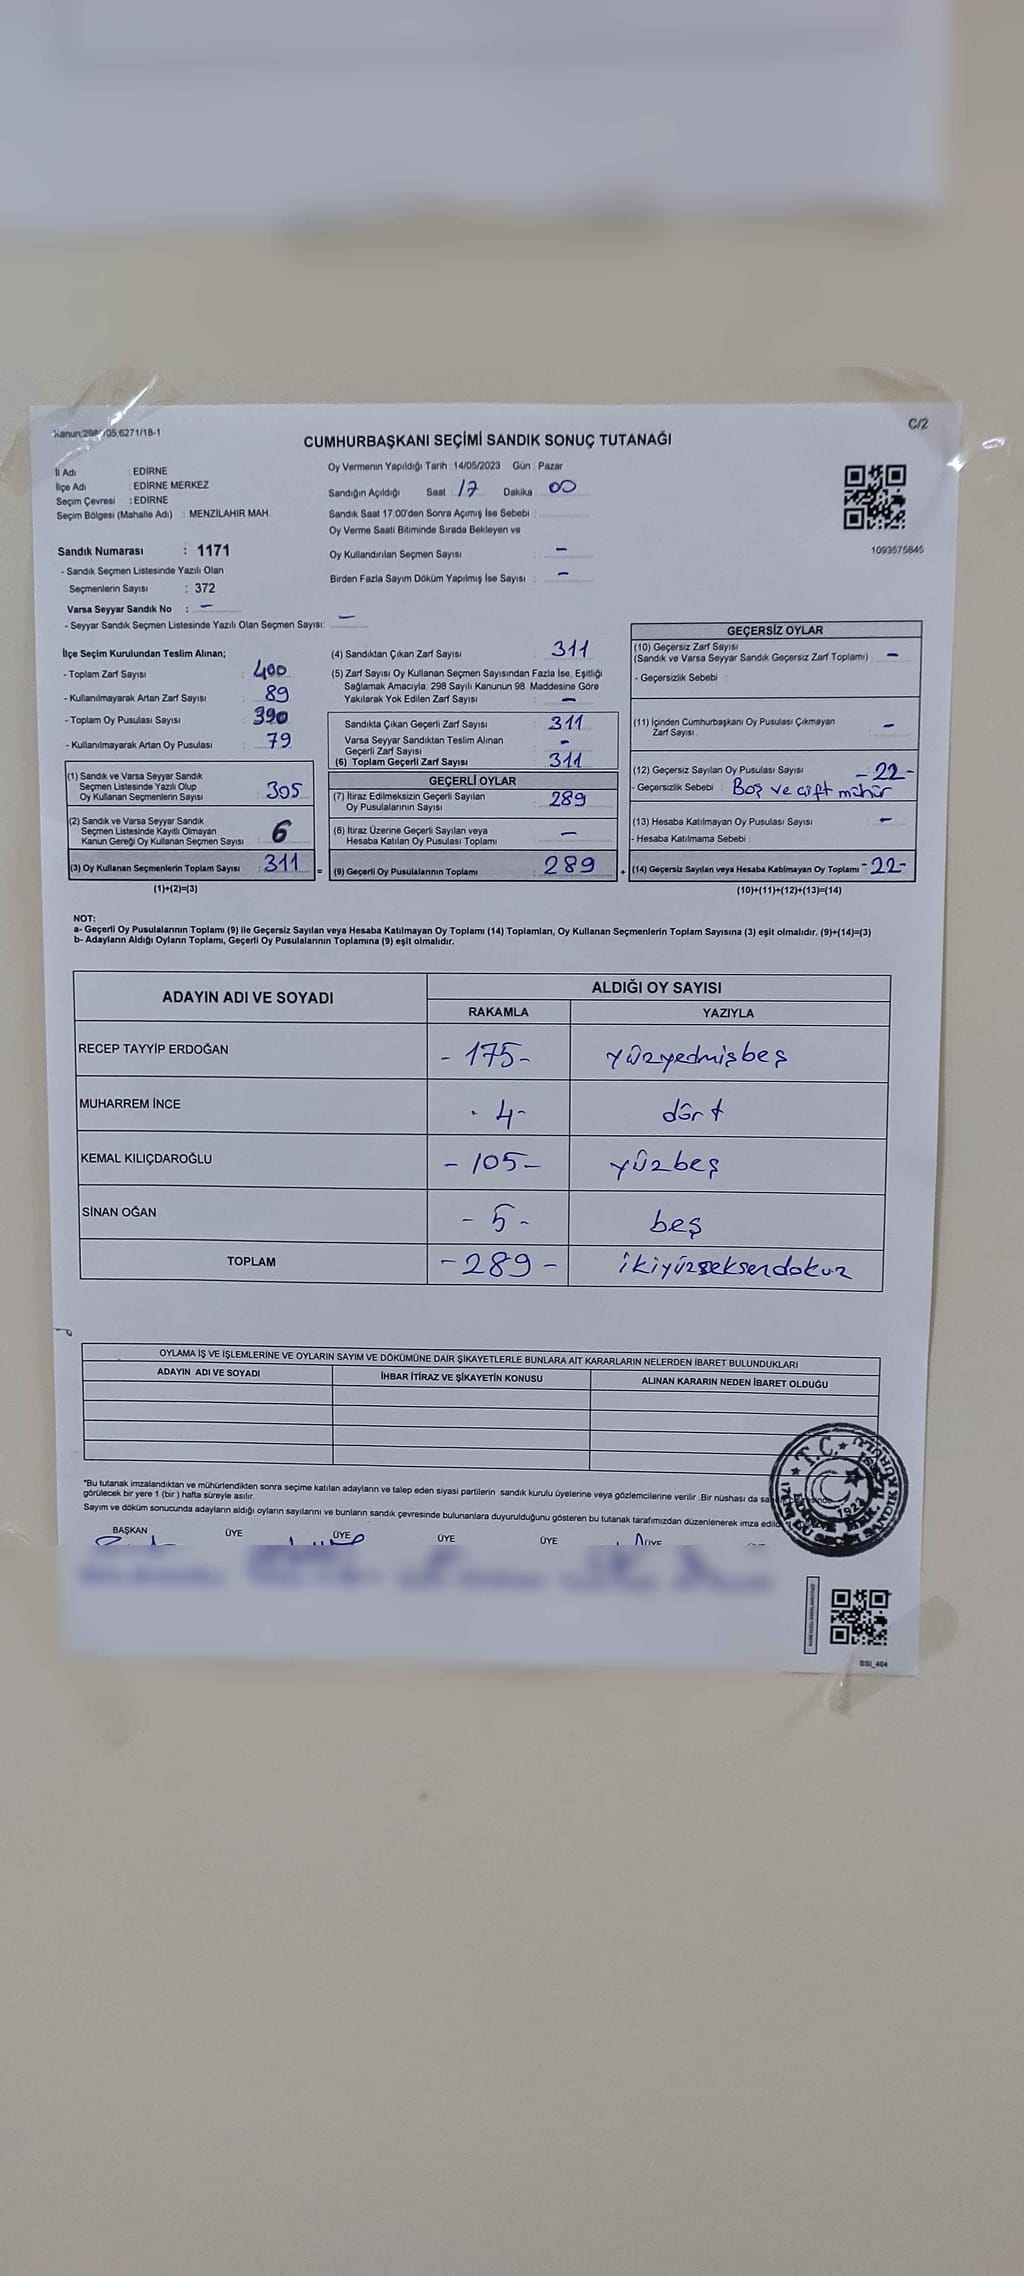 Kanun:298/105,6271/18-1
C/2
CUMHURBAŞKANI SEÇİMİ SANDIK SONUÇ TUTANAĞI
İl Adı : EDİRNE
İlçe Adı : EDİRNE MERKEZ
Seçim Çevresi : EDİRNE
Seçim Bölgesi (Mahalle Adı) : MENZİLAHIR MAH.
Sandık Numarası : 1171
- Sandık Seçmen Listesinde Yazılı Olan
Seçmenlerin Sayısı : 372
Varsa Seyyar Sandık No : –
- Seyyar Sandık Seçmen Listesinde Yazılı Olan Seçmen Sayısı: –
Oy Vermenin Yapıldığı Tarih : 14/05/2023 Gün : Pazar
Sandığın Açıldığı Saat : 17 Dakika : 00
Sandık Saat 17.00'den Sonra Açımış İse Sebebi :
Oy Verme Saati Bitiminde Sırada Bekleyen ve
Oy Kullandırılan Seçmen Sayısı : –
Birden Fazla Sayım Döküm Yapılmış İse Sayısı : –
1093575845
İlçe Seçim Kurulundan Teslim Alınan;
- Toplam Zarf Sayısı : 400
- Kullanılmayarak Artan Zarf Sayısı : 89
- Toplam Oy Pusulası Sayısı : 390
- Kullanılmayarak Artan Oy Pusulası : 79
(1) Sandık ve Varsa Seyyar Sandık
Seçmen Listesinde Yazılı Olup
Oy Kullanan Seçmenlerin Sayısı : 305
(2) Sandık ve Varsa Seyyar Sandık
Seçmen Listesinde Kayıtlı Olmayan
Kanun Gereği Oy Kullanan Seçmen Sayısı : 6
(3) Oy Kullanan Seçmenlerin Toplam Sayısı : 311
(1)+(2)=(3)
(4) Sandıktan Çıkan Zarf Sayısı : 311
(5) Zarf Sayısı Oy Kullanan Seçmen Sayısından Fazla İse, Eşitliği
Sağlamak Amacıyla, 298 Sayılı Kanunun 98. Maddesine Göre
Yakılarak Yok Edilen Zarf Sayısı : –
Sandıkta Çıkan Geçerli Zarf Sayısı : 311
Varsa Seyyar Sandıktan Teslim Alınan
Geçerli Zarf Sayısı : –
(6) Toplam Geçerli Zarf Sayısı : 311
GEÇERLİ OYLAR
(7) İtiraz Edilmeksizin Geçerli Sayılan
Oy Pusulalarının Sayısı : 289
(8) İtiraz Üzerine Geçerli Sayılan veya
Hesaba Katılan Oy Pusulası Toplamı : –
= (9) Geçerli Oy Pusulalarının Toplamı : 289
GEÇERSİZ OYLAR
(10) Geçersiz Zarf Sayısı
(Sandık ve Varsa Seyyar Sandık Geçersiz Zarf Toplamı) : –
- Geçersizlik Sebebi :
(11) İçinden Cumhurbaşkanı Oy Pusulası Çıkmayan
Zarf Sayısı : –
(12) Geçersiz Sayılan Oy Pusulası Sayısı : -22-
- Geçersizlik Sebebi : Boş ve çift mühür
(13) Hesaba Katılmayan Oy Pusulası Sayısı : –
- Hesaba Katılmama Sebebi :
+ (14) Geçersiz Sayılan veya Hesaba Katılmayan Oy Toplamı -22-
(10)+(11)+(12)+(13)=(14)
NOT:
a- Geçerli Oy Pusulalarının Toplamı (9) ile Geçersiz Sayılan veya Hesaba Katılmayan Oy Toplamı (14) Toplamları, Oy Kullanan Seçmenlerin Toplam Sayısına (3) eşit olmalıdır. (9)+(14)=(3)
b- Adayların Aldığı Oyların Toplamı, Geçerli Oy Pusulalarının Toplamına (9) eşit olmalıdır.
ADAYIN ADI VE SOYADI
ALDIĞI OY SAYISI
RAKAMLA
YAZIYLA
RECEP TAYYİP ERDOĞAN -175- yüzyedmişbeş
MUHARREM İNCE -4- dört
KEMAL KILIÇDAROĞLU -105- yüzbeş
SİNAN OĞAN -5- beş
TOPLAM -289- ikiyüzseksendokuz
OYLAMA İŞ VE İŞLEMLERİNE VE OYLARIN SAYIM VE DÖKÜMÜNE DAİR ŞİKAYETLERLE BUNLARA AİT KARARLARIN NELERDEN İBARET BULUNDUKLARI
ADAYIN ADI VE SOYADI
İHBAR İTİRAZ VE ŞİKAYETİN KONUSU
ALINAN KARARIN NEDEN İBARET OLDUĞU
*Bu tutanak imzalandıktan ve mühürlendikten sonra seçime katılan adayların ve talep eden siyasi partilerin sandık kurulu üyelerine veya gözlemcilerine verilir. Bir nüshası da
görülecek bir yere 1 (bir) hafta süreyle asılır.
Sayım ve döküm sonucunda adayların aldığı oyların sayılarını ve bunların sandık çevresinde bulunanlara duyurulduğunu gösteren bu tutanak tarafımızdan düzenlenerek imza
T.C.
BAŞKAN ÜYE ÜYE ÜYE ÜYE ÜYE
SSI_404